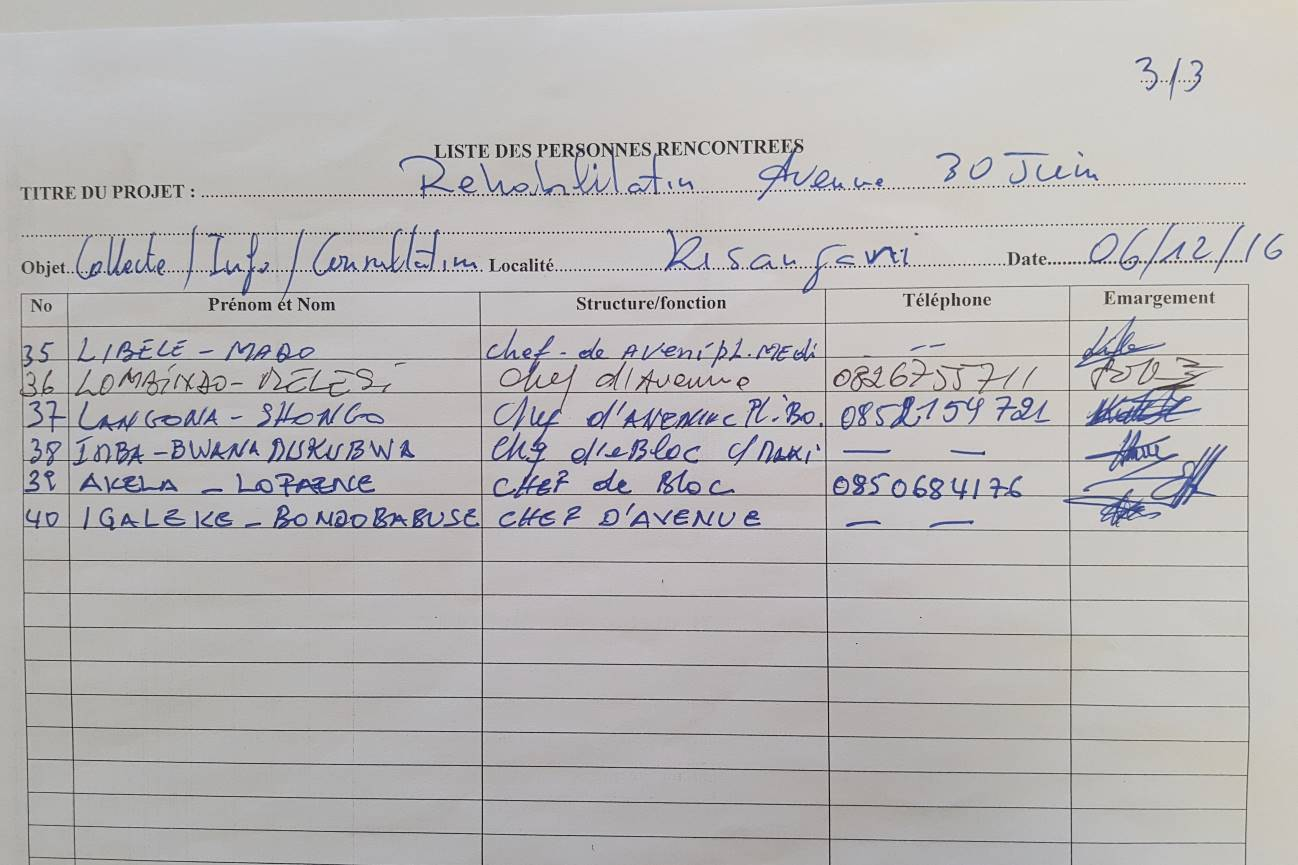 3/3
LISTE DES PERSONNES RENCONTREES
TITRE DU PROJET : Rehabilitatin Avenue 30 Juin
Objet Collecte / Info / Consultatim Localité Kisangani Date 06/12/16
No Prénom et Nom Structure/fonction Téléphone Emargement
35 LIBELE - MADO chef - de AVeni pL. MEdi --
36 Chef d'Avenue 0826755711
37 LANGONA - SHONGO Chef d'AVENUE Pl. Bo. 0852154721
38 IMBA - BWANA DUKUBWA — —
39 AKELA - CHEF de Bloc 0850684176
40 IGALEKE - BONDOBABUSE CHEF D'AVENUE — —